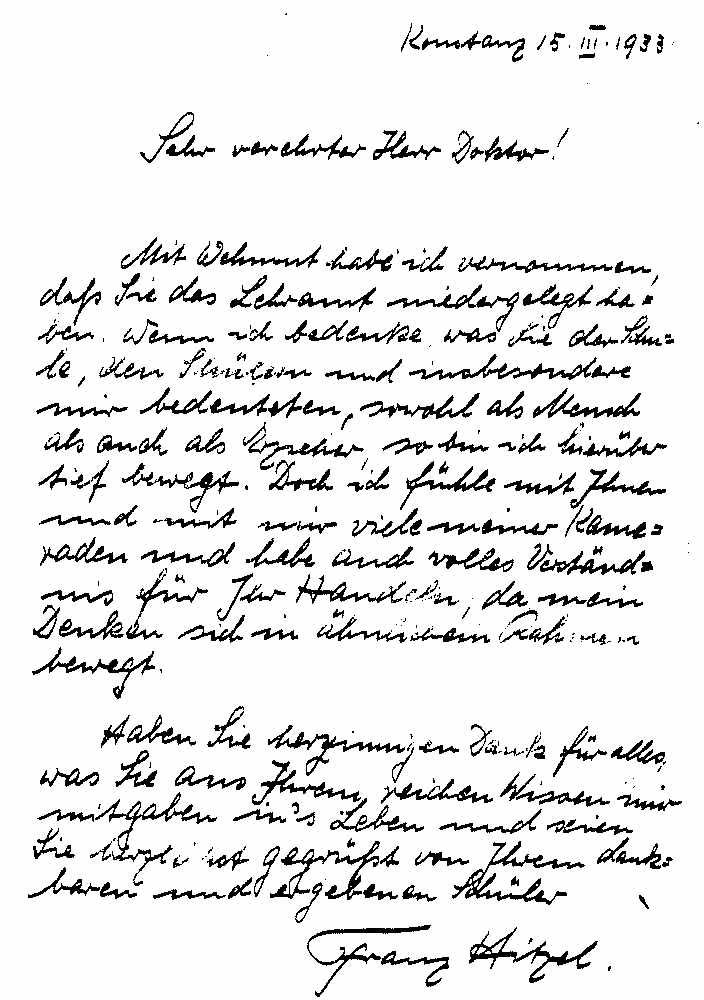 Konstanz 15. III. 1933.
Sehr verehrter Herr Doktor!
Mit Wehmut habe ich vernommen,
daß Sie das Lehramt niedergelegt ha=
ben. Wenn ich bedenke, was Sie der Schu=
le, den Schülern und insbesondere
mir bedeuteten, sowohl als Mensch
als auch als Erzieher, so bin ich hierüber
tief bewegt. Doch ich fühle mit Ihnen
und mit mir viele meiner Kame=
raden und habe auch volles Verständ=
nis für Ihr Handeln, da mein
Denken sich in ähnlichem Rahmen
bewegt.
Haben Sie herzinnigen Dank für alles,
was Sie aus Ihrem reichen Wissen mir
mitgaben in's Leben und seien
Sie herzlichst gegrüßt von Ihrem dank=
baren und ergebenen Schüler
Franz Hitzel.